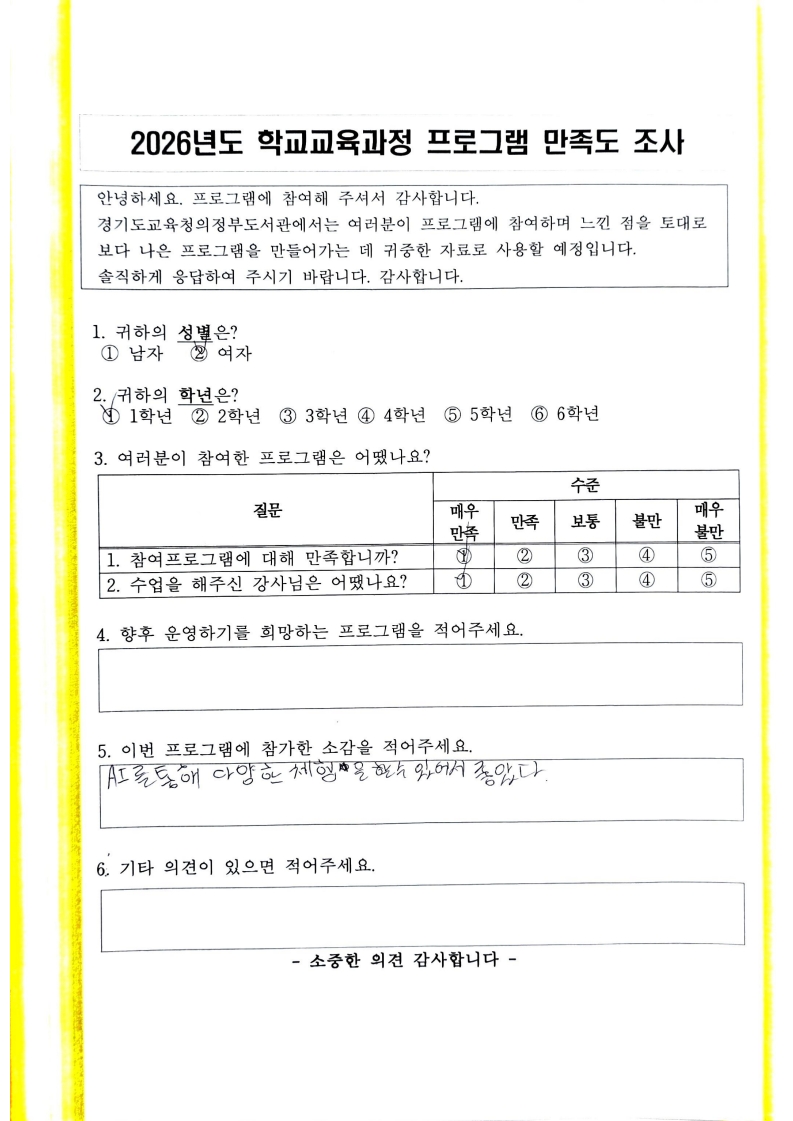 2026년도 학교교육과정 프로그램 만족도 조사
안녕하세요. 프로그램에 참여해 주셔서 감사합니다.
경기도교육청의정부도서관에서는 여러분이 프로그램에 참여하며 느낀 점을 토대로
보다 나은 프로그램을 만들어가는 데 귀중한 자료로 사용할 예정입니다.
솔직하게 응답하여 주시기 바랍니다. 감사합니다.
1. 귀하의 성별은?
① 남자 ② 여자
2. 귀하의 학년은?
① 1학년 ② 2학년 ③ 3학년 ④ 4학년 ⑤ 5학년 ⑥ 6학년
3. 여러분이 참여한 프로그램은 어땠나요?
질문 수준
매우 만족 만족 보통 불만 매우 불만
1. 참여프로그램에 대해 만족합니까? ① ② ③ ④ ⑤
2. 수업을 해주신 강사님은 어땠나요? ① ② ③ ④ ⑤
4. 향후 운영하기를 희망하는 프로그램을 적어주세요.
5. 이번 프로그램에 참가한 소감을 적어주세요.
AI를 통해 다양한 체험을 할수 있어서 좋았다.
6. 기타 의견이 있으면 적어주세요.
- 소중한 의견 감사합니다 -